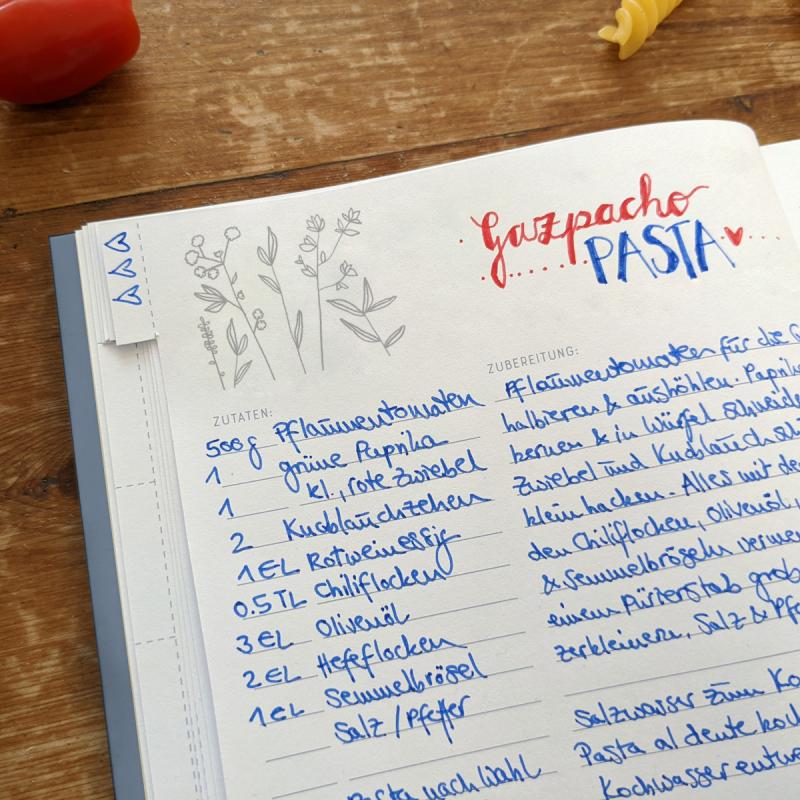 Gazpacho
PASTA
ZUTATEN:
500g Pflaumentomaten
1 grüne Paprika
1 kl., rote Zwiebel
2 Knoblauchzehen
1 EL Rotweinessig
0.5 TL Chiliflocken
3 EL Olivenöl
2 EL Hefeflocken
1 EL Semmelbrösel
Salz / Pfeffer
Pasta nach Wahl
ZUBEREITUNG:
Pflaumentomaten für die
halbieren & aushöhlen. Paprika
kernen & in Würfel schneide
Zwiebel und Knoblauch
klein hacken. Alles mit
den Chiliflocken, Olivenöl,
& Semmelbröseln
einem Pürierstab grob
zerkleinern, Salz &
Salzwasser zum
Pasta al dente
Kochwasser